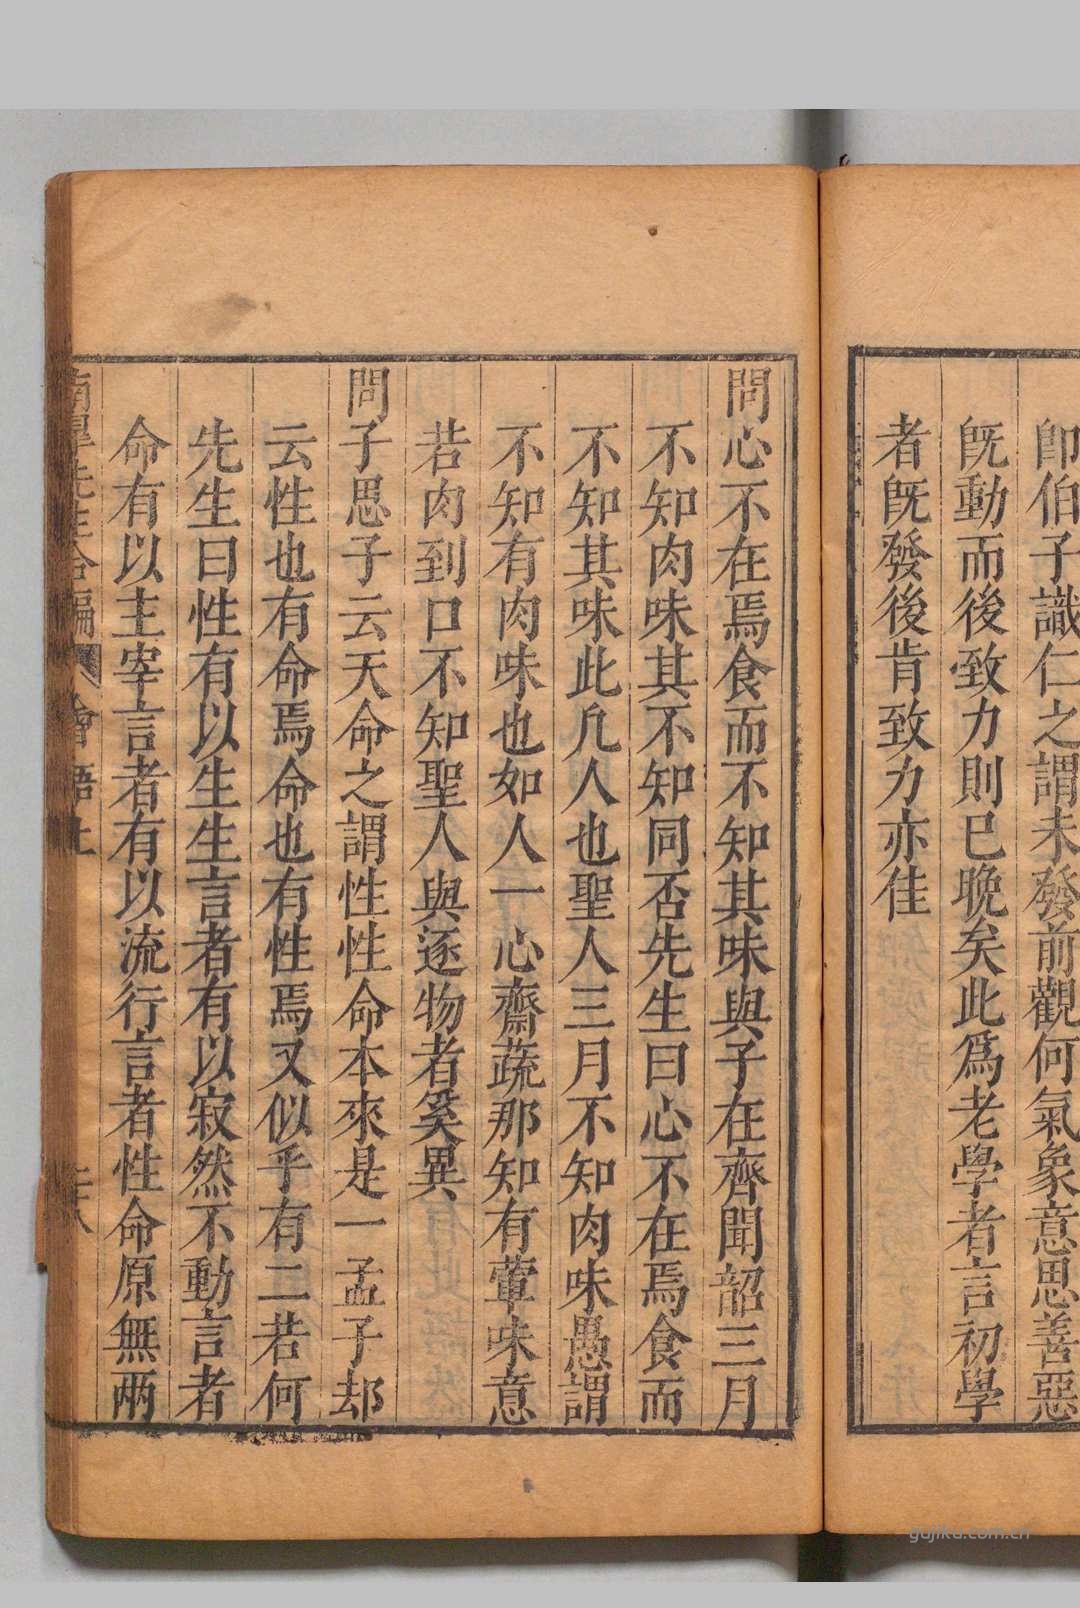 即伯子識仁之謂未發前觀何氣象意思善惡
旣動而後致力則已晚矣此爲老學者言初學
者旣發後肯致力亦佳
問心不在焉食而不知其味與子在齊聞韶三月
不知肉味其不知同否先生曰心不在焉食而
不知其味此凡人也聖人三月不知肉味愚謂
不知有肉味也如人一心齋蔬那知有葷味意
若肉到口不知聖人與逐物者奚異
問子思子云天命之謂性性命本來是一孟子却
云性也有命焉命也有性焉又似乎有二若何
先生曰性有以生生言者有以寂然不動言者
命有以主宰言者有以流行言者性命原無兩
南臯先生合編 會語上
gujiku.com.cn